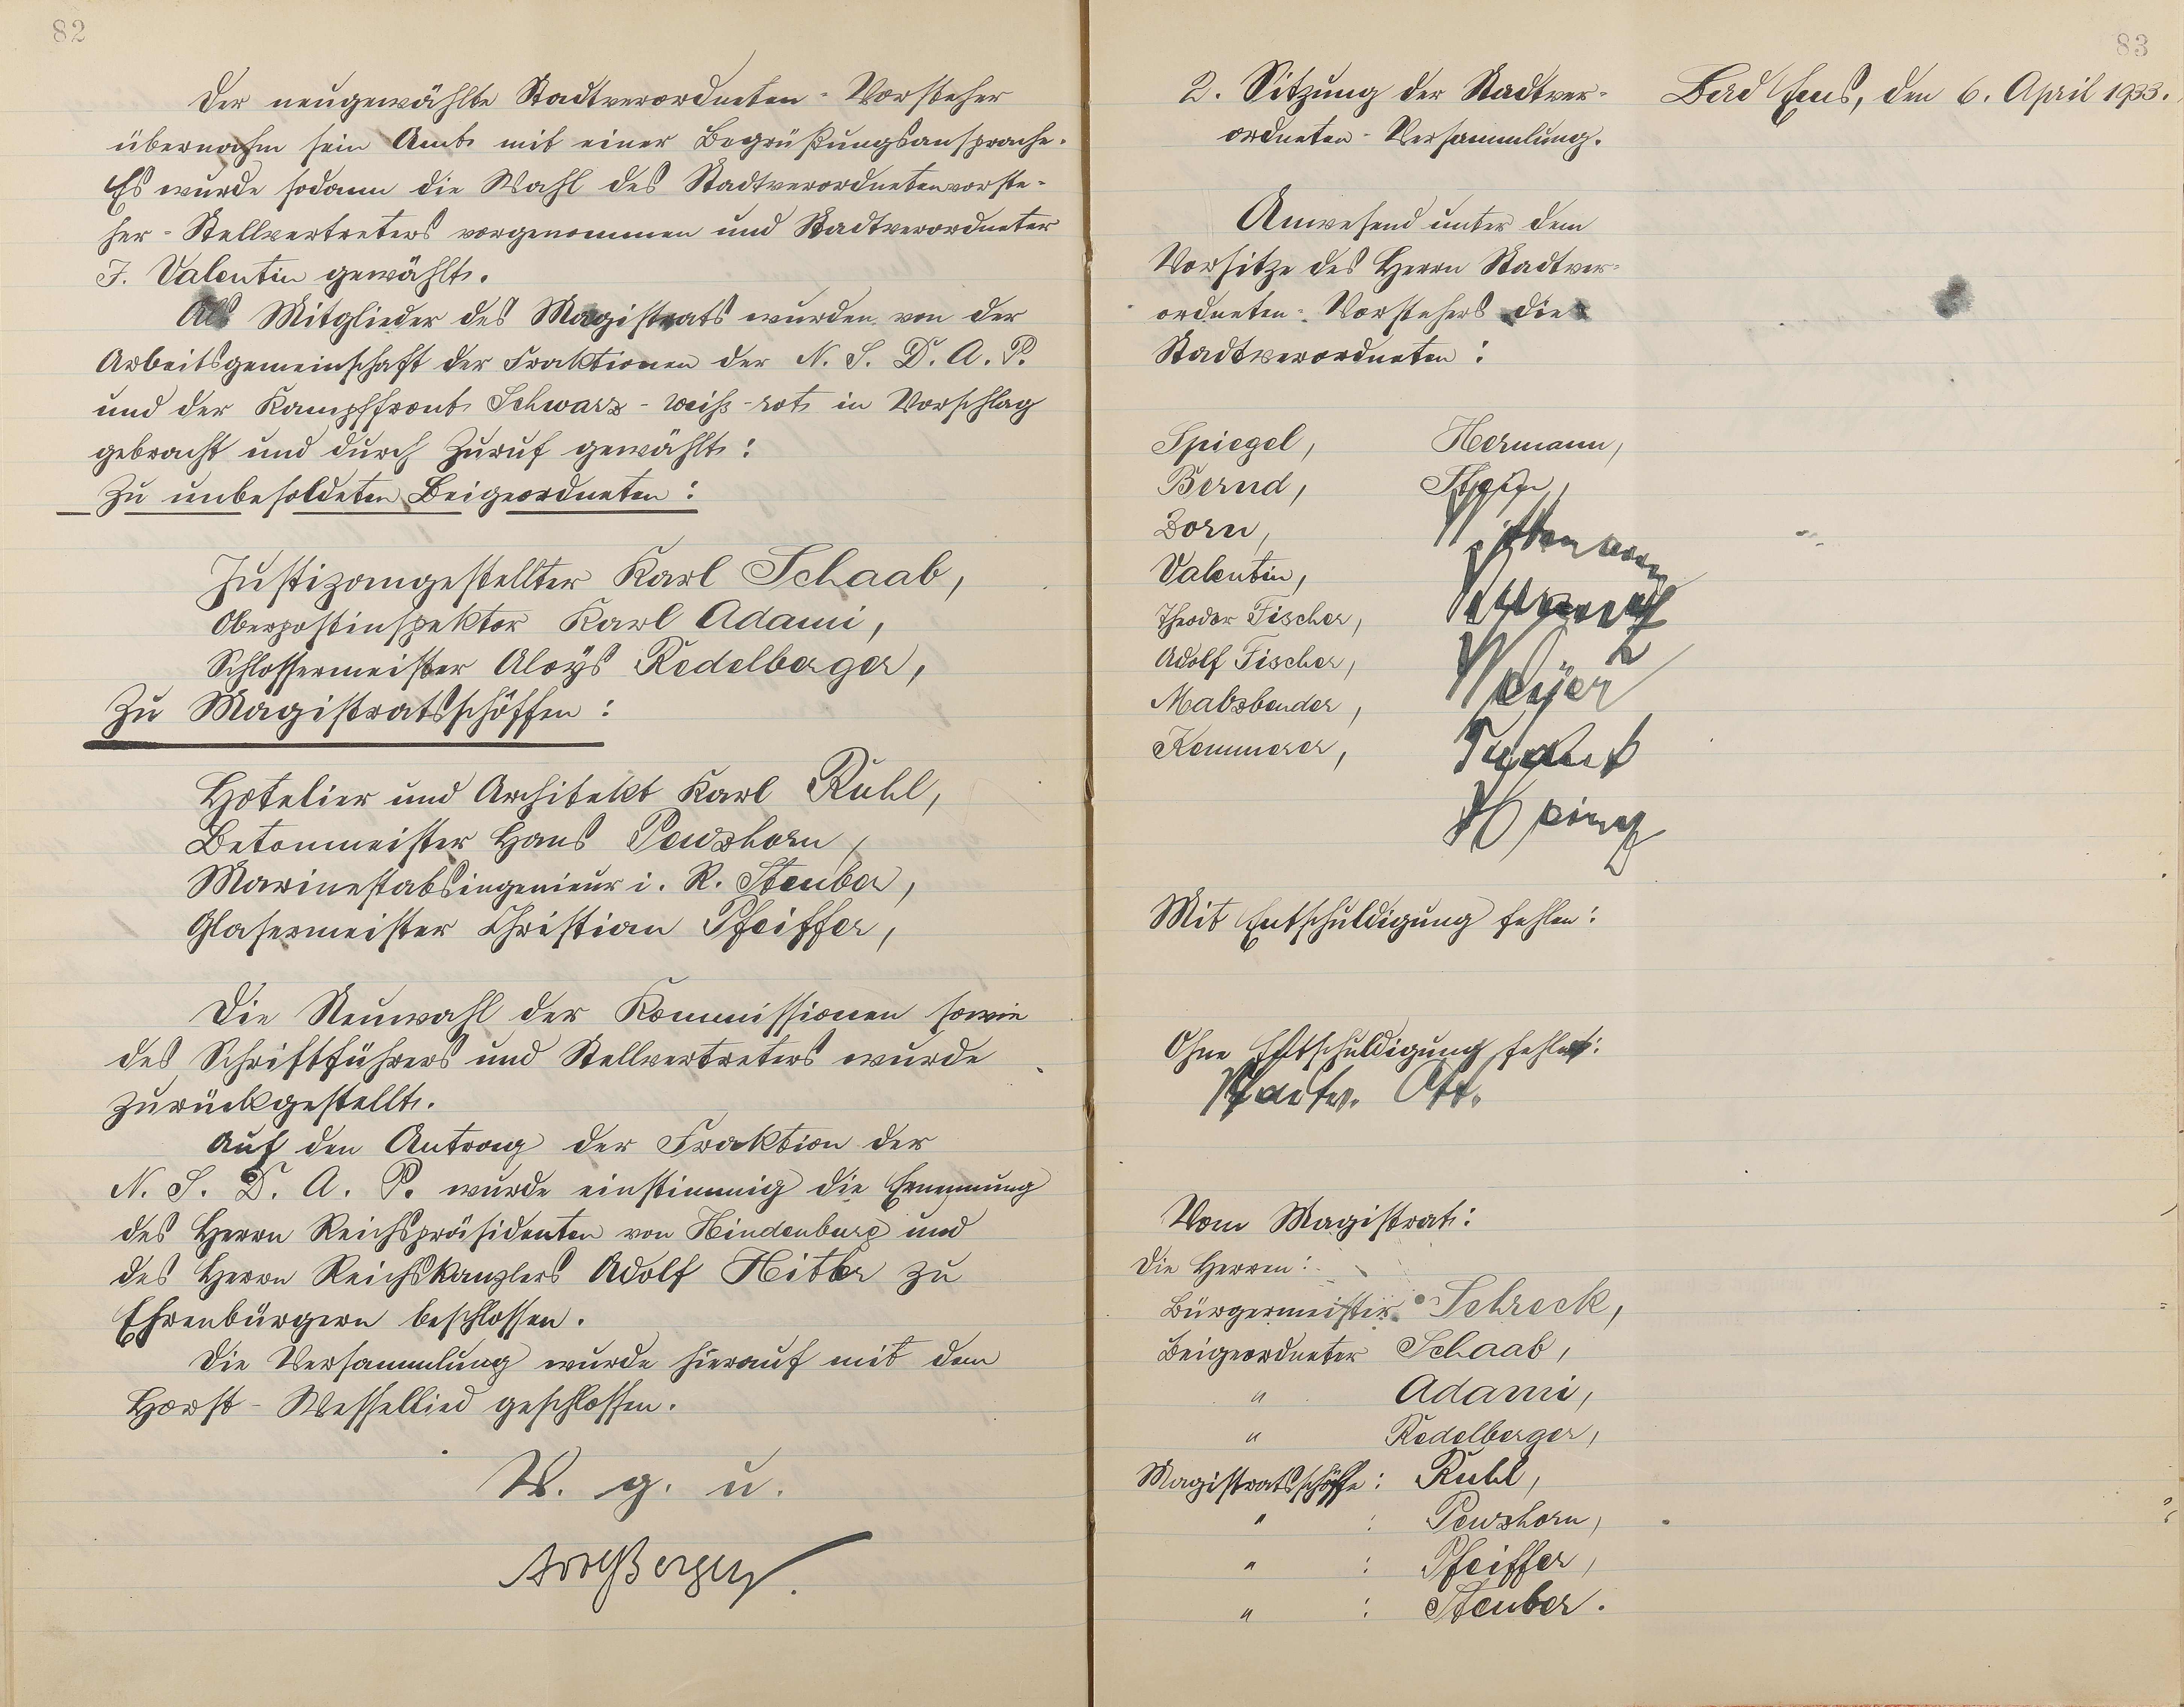 82
Der neugewählte Stadtverordneten-Vorsteher
übernahm sein Amt mit einer Begrüßungsansprache.
Es wurde sodann die Wahl des Stadtverordnetenvorste-
her-Stellvertreters vorgenommen und Stadtverordneter
J. Valentin gewählt.
Als Mitglieder des Magistrats wurden von der
Arbeitsgemeinschaft der Fraktionen der N. S. D. A. P.
und der Kampffront Schwarz-weiß-rot in Vorschlag
gebracht und durch Zuruf gewählt:
Zu unbesoldeten Beigeordneten:
Justizangestellter Karl Schaab,
Oberpostinspektor Karl Adami,
Schlossermeister Aloys Redelberger,
Zu Magistratsschöffen:
Hotelier und Architekt Karl Ruhl,
Betonmeister Hans Pewzhorn,
Marinestabsingenieur i. R. Steuber,
Glasermeister Christian Pfeiffer,
Die Neuwahl der Kommissionen sowie
des Schriftführers und Stellvertreters wurde
zurückgestellt.
Auf den Antrag der Fraktion der
N. S. D. A. P. wurde einstimmig die Ernennung
des Herrn Reichspräsidenten von Hindenburg und
des Herrn Reichskanzlers Adolf Hitler zu
Ehrenbürgern beschlossen.
Die Versammlung wurde hierauf mit dem
Horst-Wessellied geschlossen.
V. g. u.
83
2. Sitzung der Stadtver-
ordneten-Versammlung.
Bad Ems, den 6. April 1933.
Anwesend unter dem
Vorsitze des Herrn Stadtver-
ordneten-Vorstehers die
Stadtverordneten:
Spiegel, Hermann,
Bernd,
Born,
Valentin,
Theodor Fischer,
Adolf Fischer,
Mabsbender, Weyer
Kemmerer,
Mit Entschuldigung fehlen:
Ohne Entschuldigung fehlt:
Stadtv. Ott.
Vom Magistrat:
Die Herren:
Bürgermeister Schreck,
Beigeordneter Schaab,
" Adami,
" Redelberger,
Magistratsschöffe: Ruhl,
" : Pewzhorn,
" : Pfeiffer,
" : Steuber.